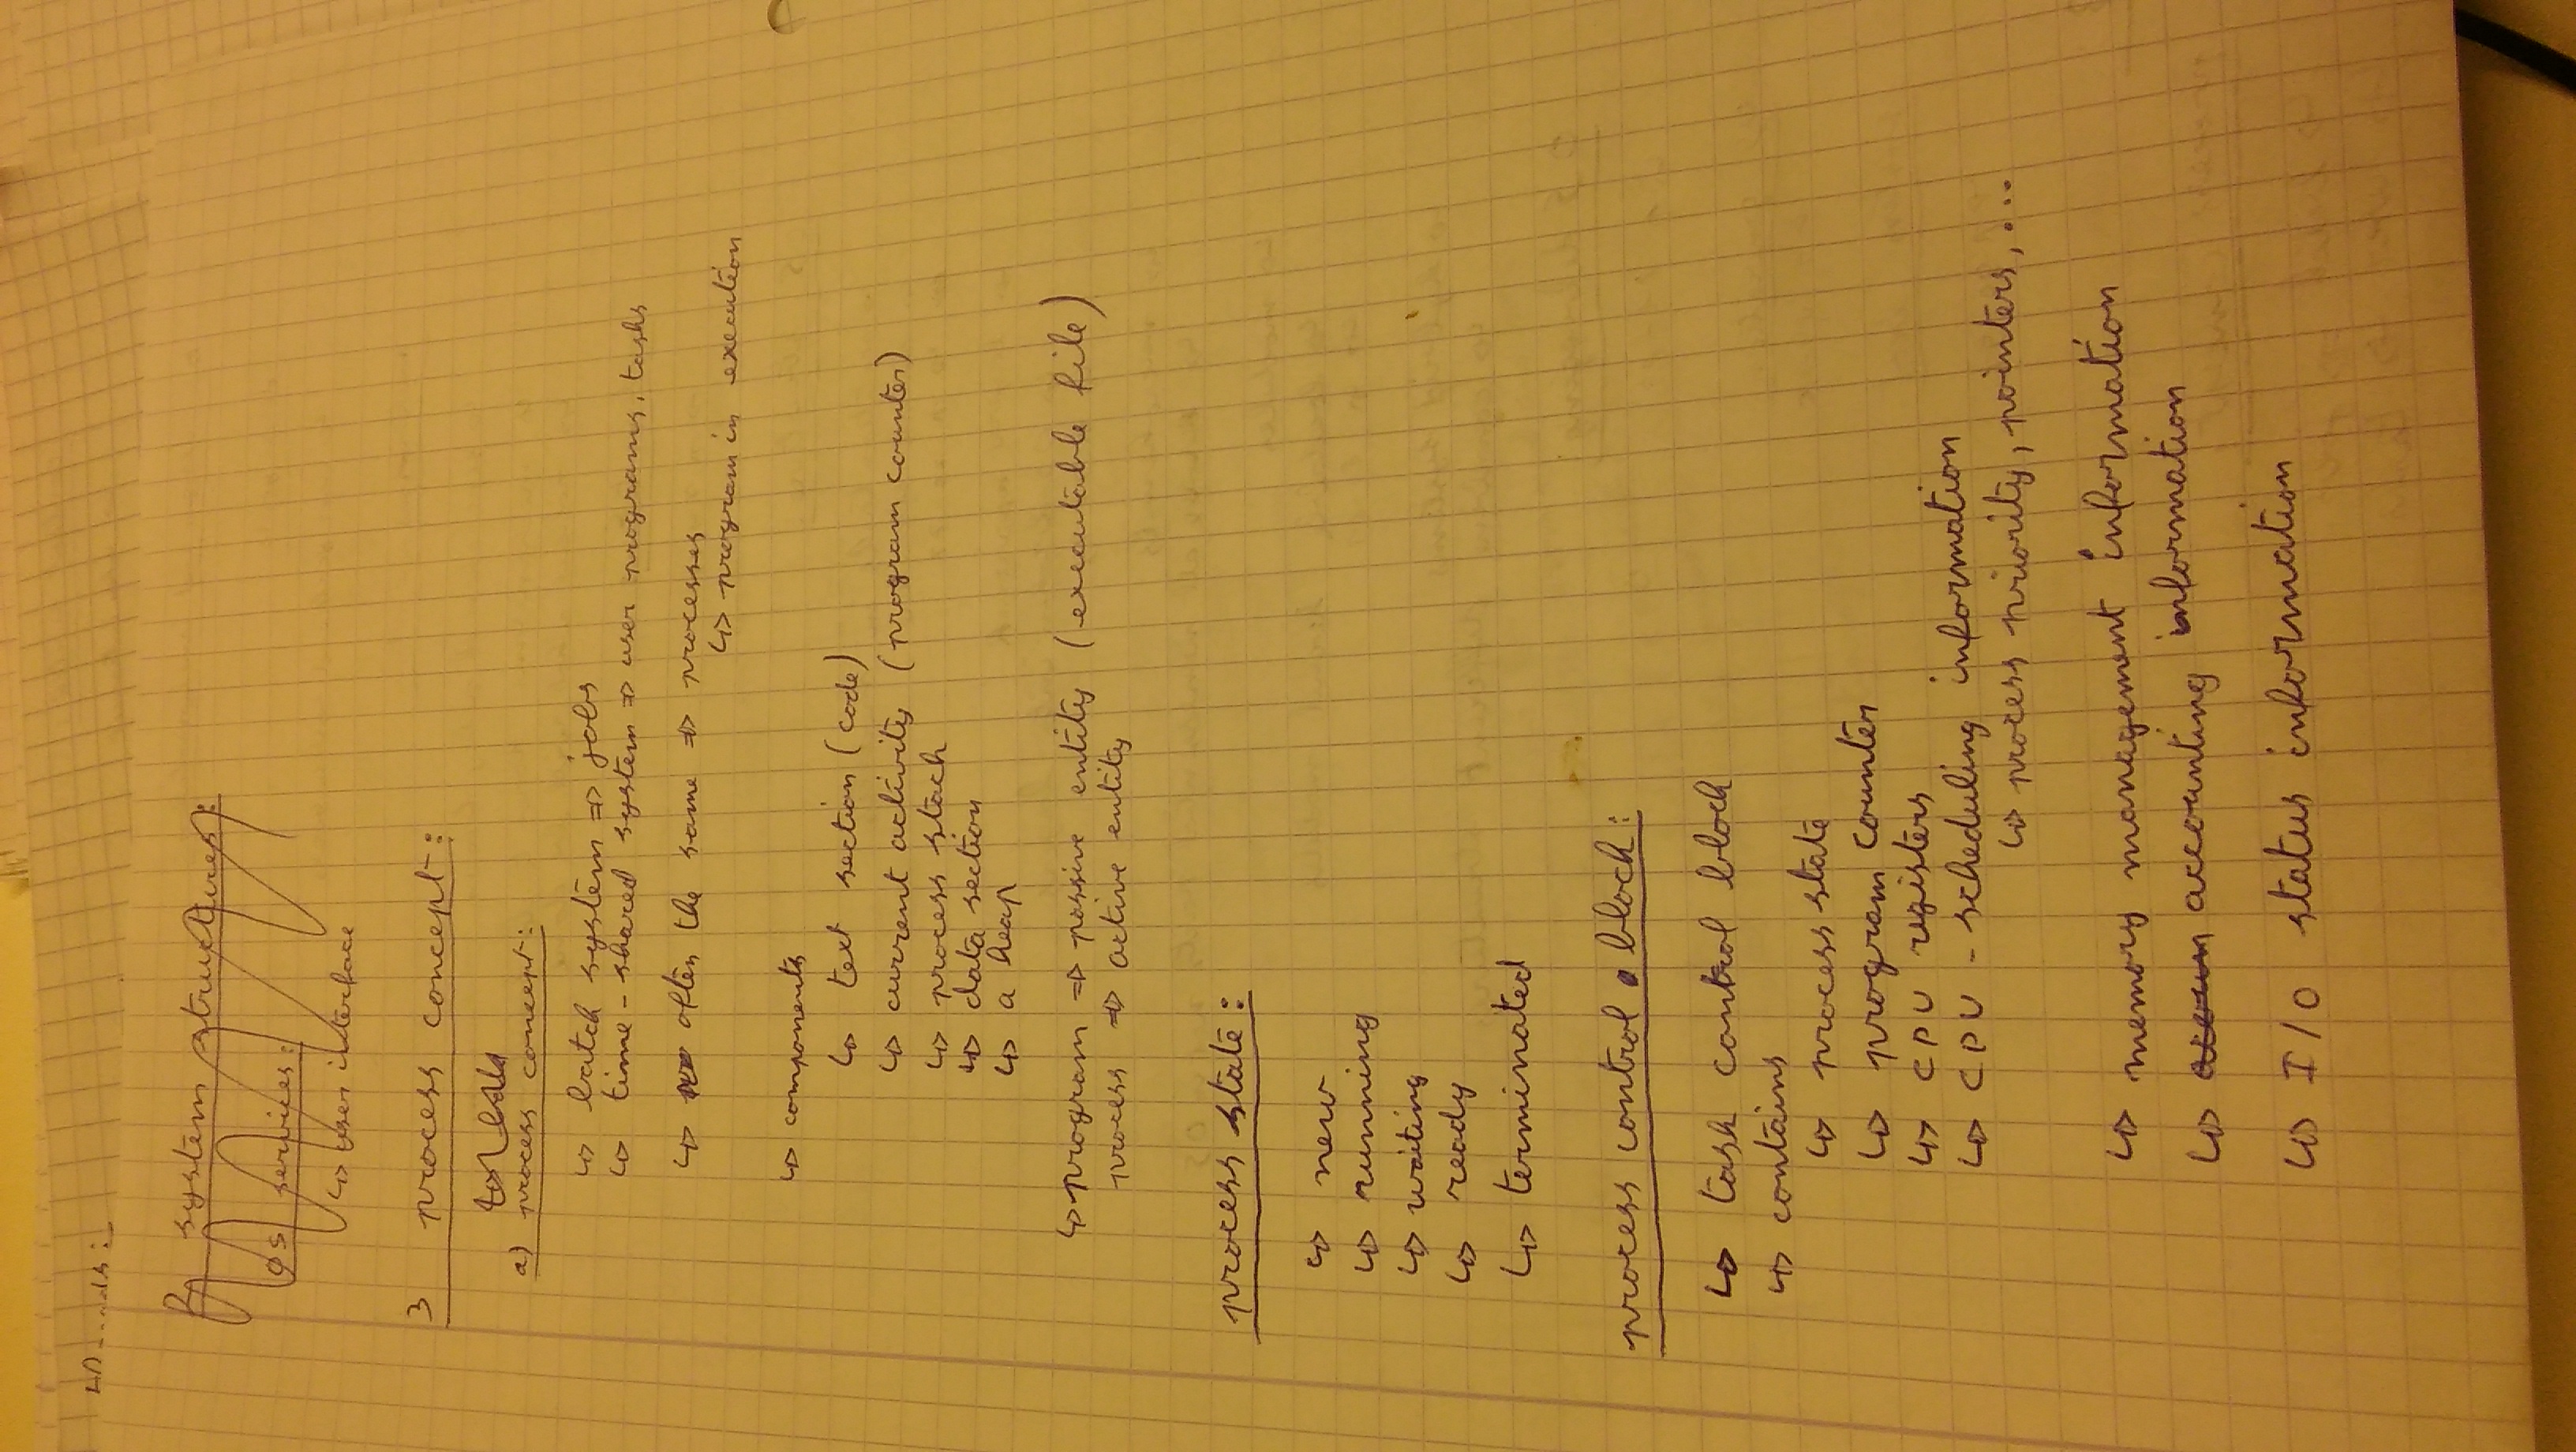 2 system structures:
OS services:
↳ user interface
3 process concept:
a) process concept:
↳ batch system => jobs
↳ time-shared system => user programs, tasks
↳ often the same => processes
↳ program in execution
↳ components
↳ text section (code)
↳ current activity (program counter)
↳ process stack
↳ data section
↳ a heap
↳ program => passive entity (executable file)
process => active entity
process state:
↳ new
↳ running
↳ waiting
↳ ready
↳ terminated
process control block:
↳ task control block
↳ contains
↳ process state
↳ program counter
↳ CPU registers
↳ CPU-scheduling information
↳ process priority, pointers, ...
↳ memory management information
↳ accounting information
↳ I/O status information